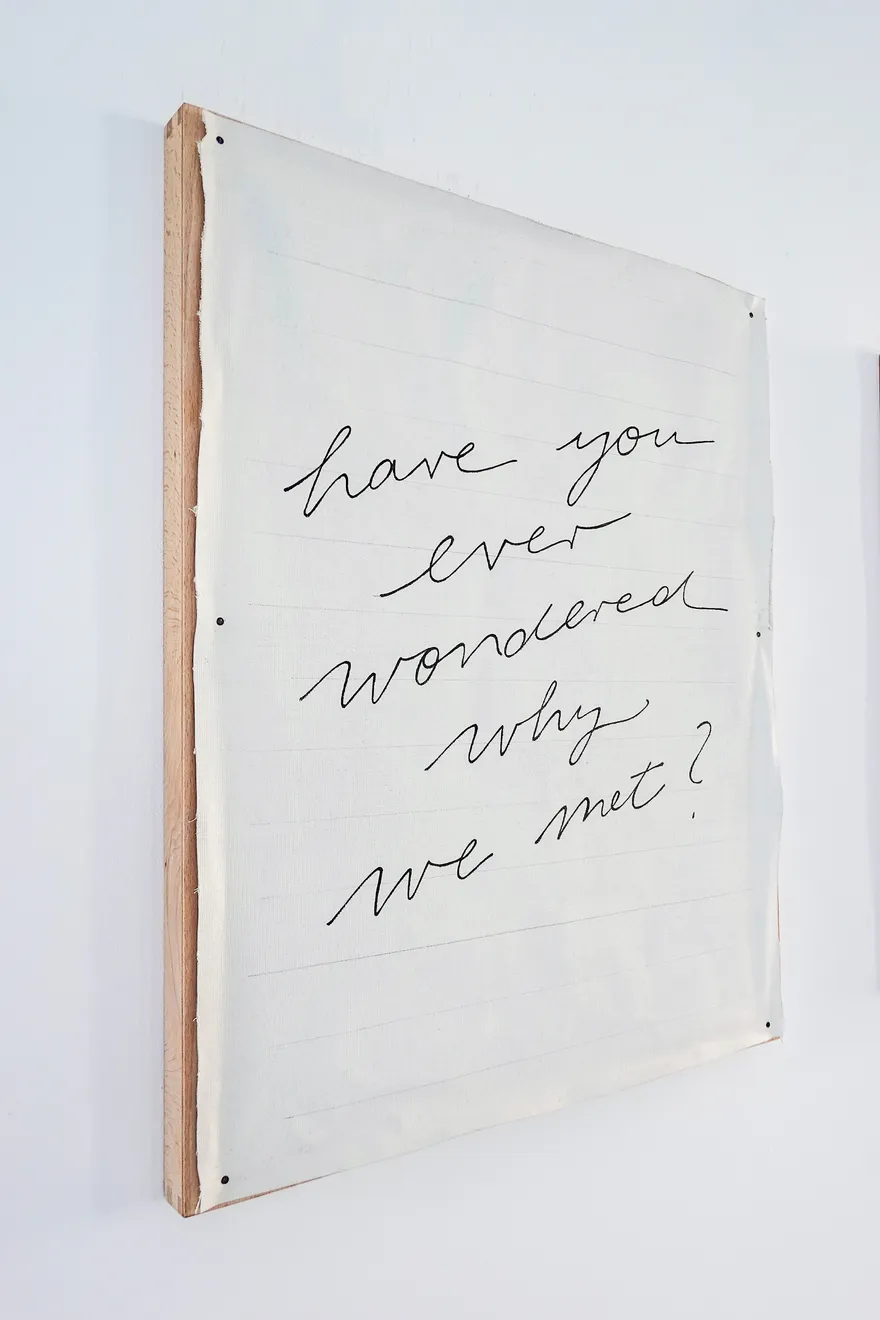 have you
ever
wondered
why
we met?